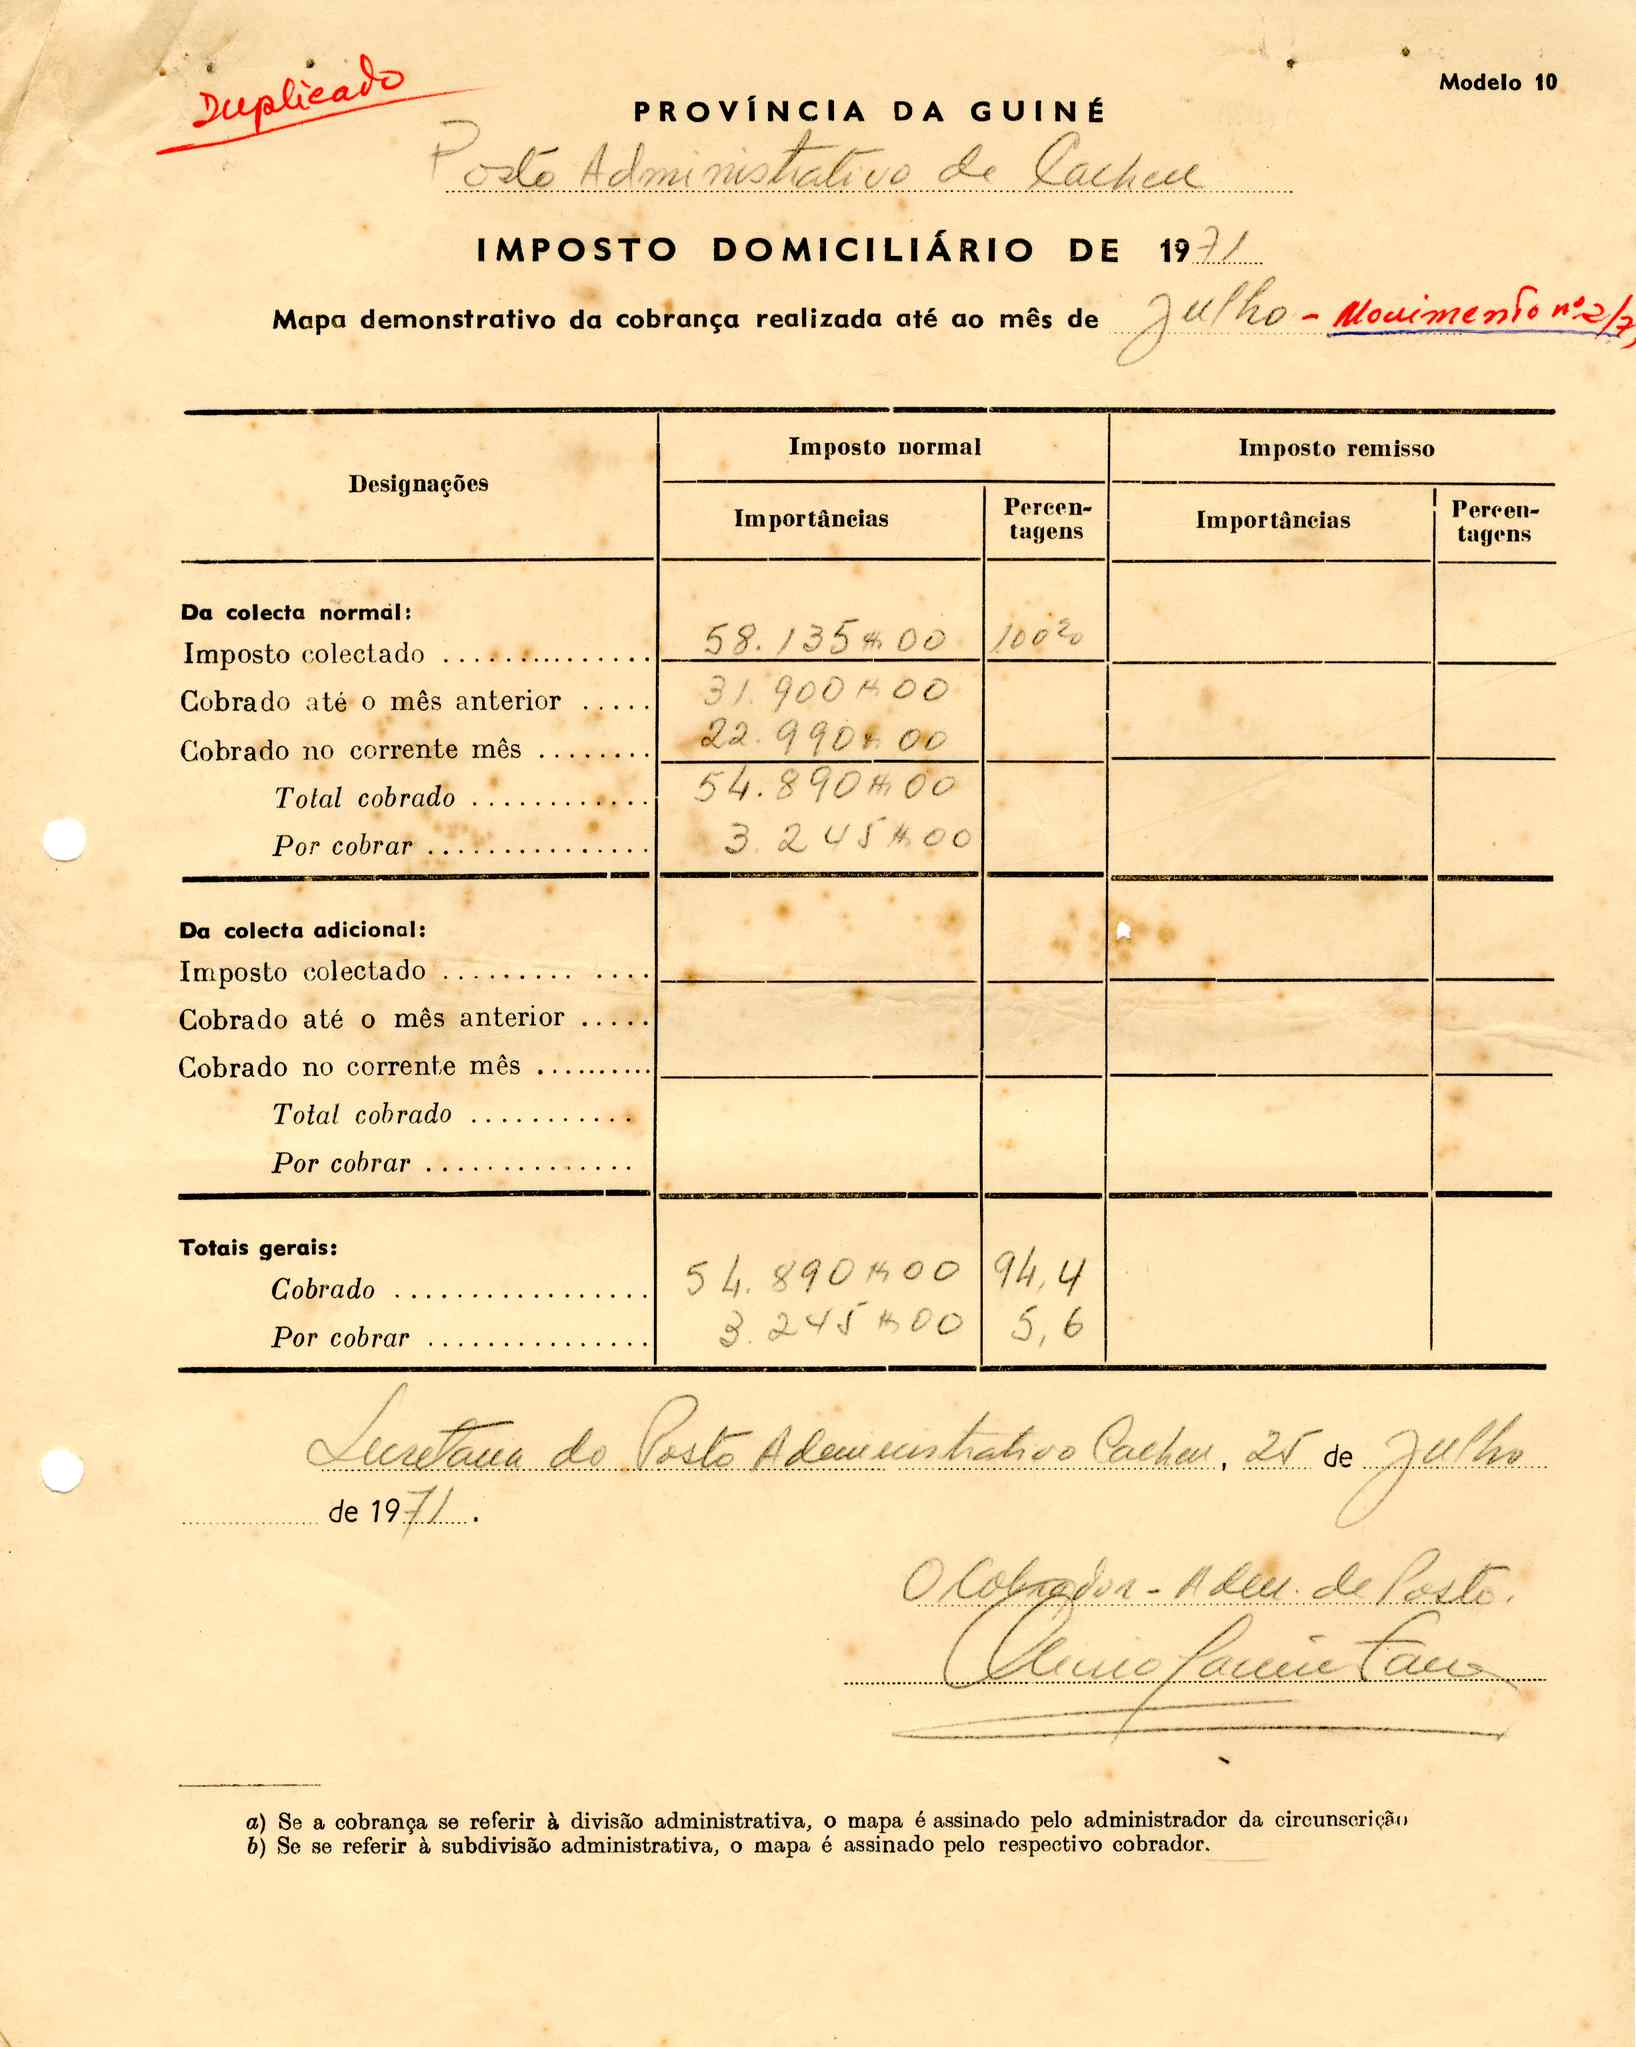 Duplicado
Modelo 10
PROVÍNCIA DA GUINÉ
Posto Administrativo de Cacheu
IMPOSTO DOMICILIÁRIO DE 1971
Mapa demonstrativo da cobrança realizada até ao mês de Julho - Movimento nº 2/7
Designações
Imposto normal
Imposto remisso
Importâncias
Percen-
tagens
Importâncias
Percen-
tagens
Da colecta normal:
Imposto colectado .................... 58.135$00 100%
Cobrado até o mês anterior ..... 31.900$00
Cobrado no corrente mês ........ 22.990$00
Total cobrado ............ 54.890$00
Por cobrar ............... 3.245$00
Da colecta adicional:
Imposto colectado ......... ....
Cobrado até o mês anterior .....
Cobrado no corrente mês ..........
Total cobrado ...........
Por cobrar ..............
Totais gerais:
Cobrado ................. 54.890$00 94,4
Por cobrar ............... 3.245$00 5,6
Secretaria do Posto Administrativo Cacheu, 25 de Julho
de 1971.
O Cobrador - Adm. de Posto.
a) Se a cobrança se referir à divisão administrativa, o mapa é assinado pelo administrador da circunscrição
b) Se se referir à subdivisão administrativa, o mapa é assinado pelo respectivo cobrador.